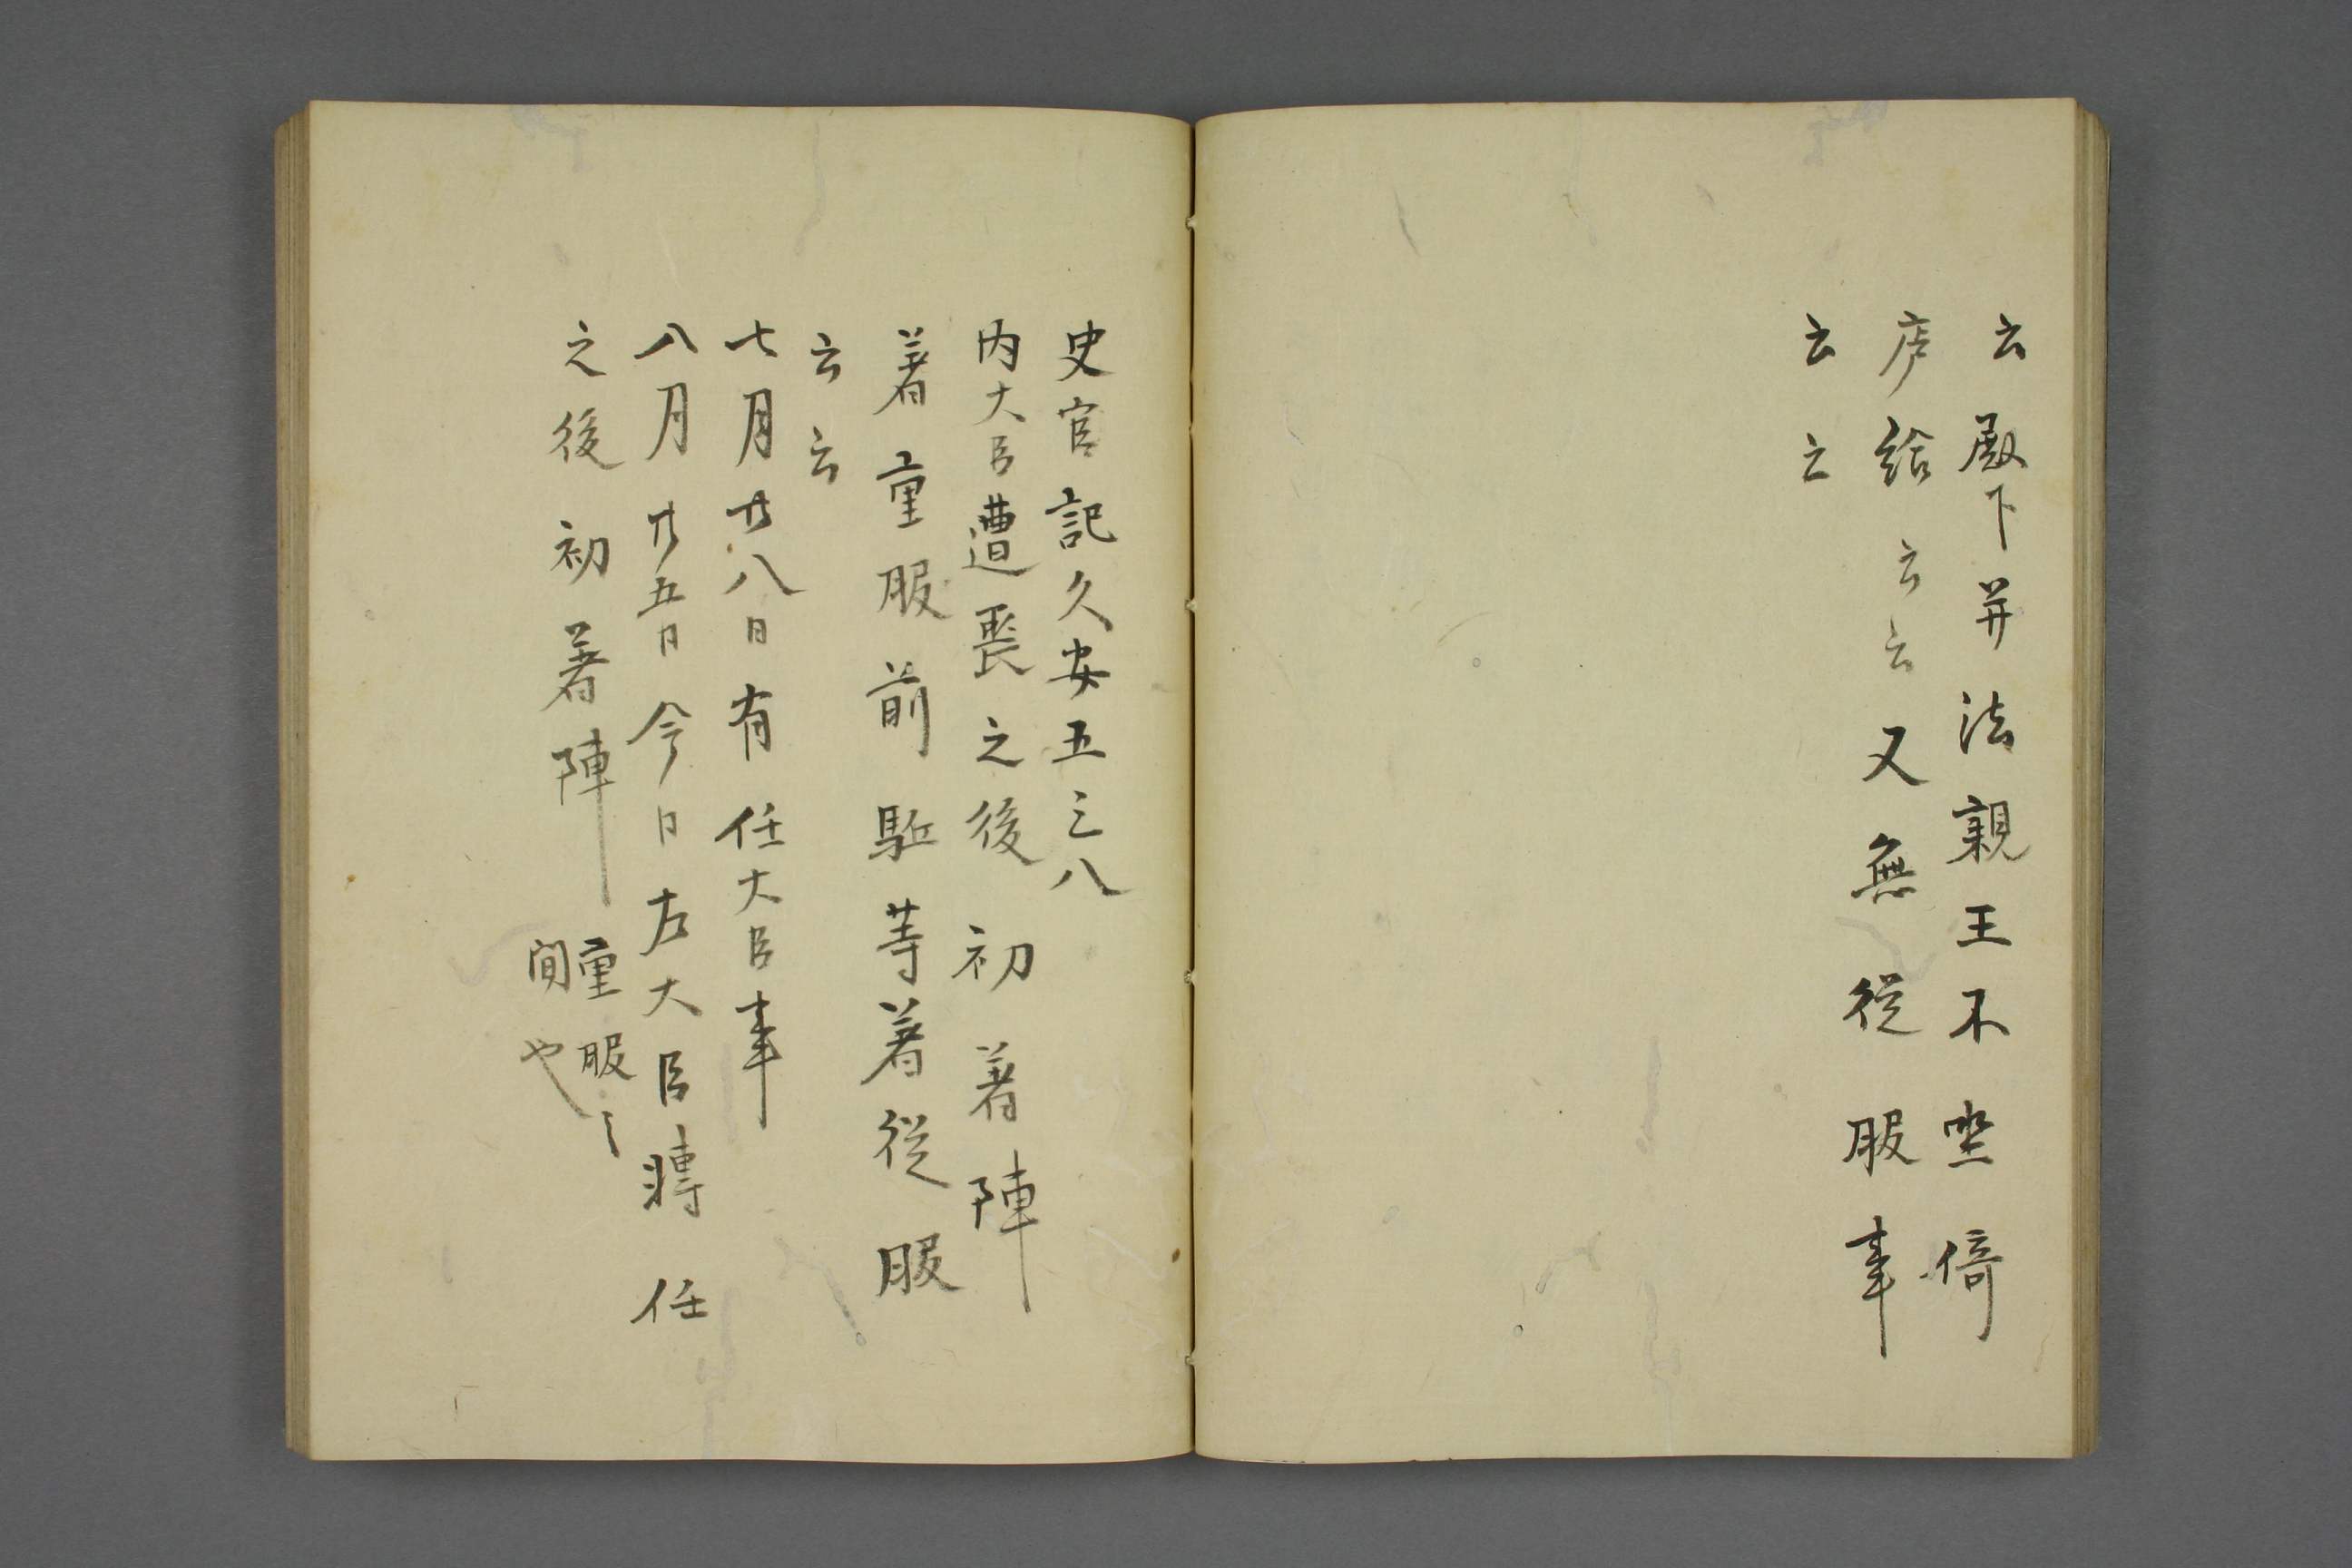 云殿下并法親王不坐倚
庐給云云又無従服事
云云
史官記久安五三八
内大臣遭喪之後初著陣
著重服前駈等著従服
云云
七月廿八日有任大臣事
八月廿五日今日左大臣轉任
之後初著陣
重服之
間也